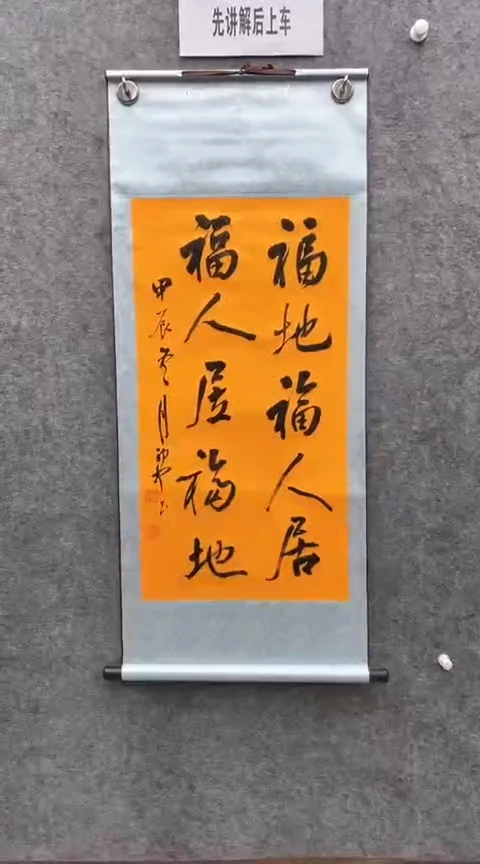 先讲解后上车
福地福人居
福人居福地
甲辰冬月